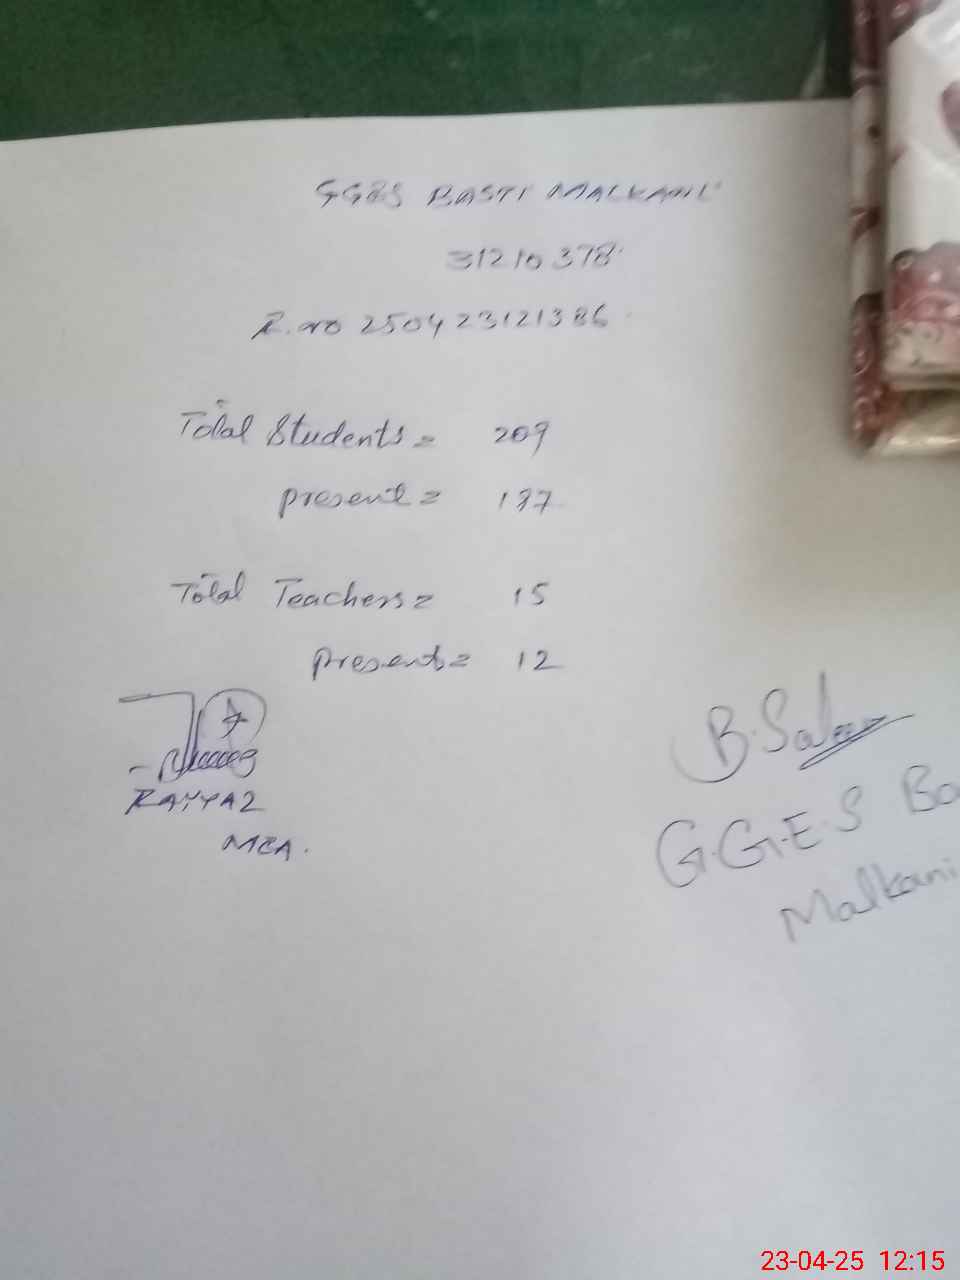 GGES BASTI MALKANI
31210378
R.no 250423121386
Total Students = 209
present = 197
Total Teachers = 15
present = 12
RAYYAZ
MEA.
B. Saleem
G.G.E.S Ba
Malkani
23-04-25 12:15